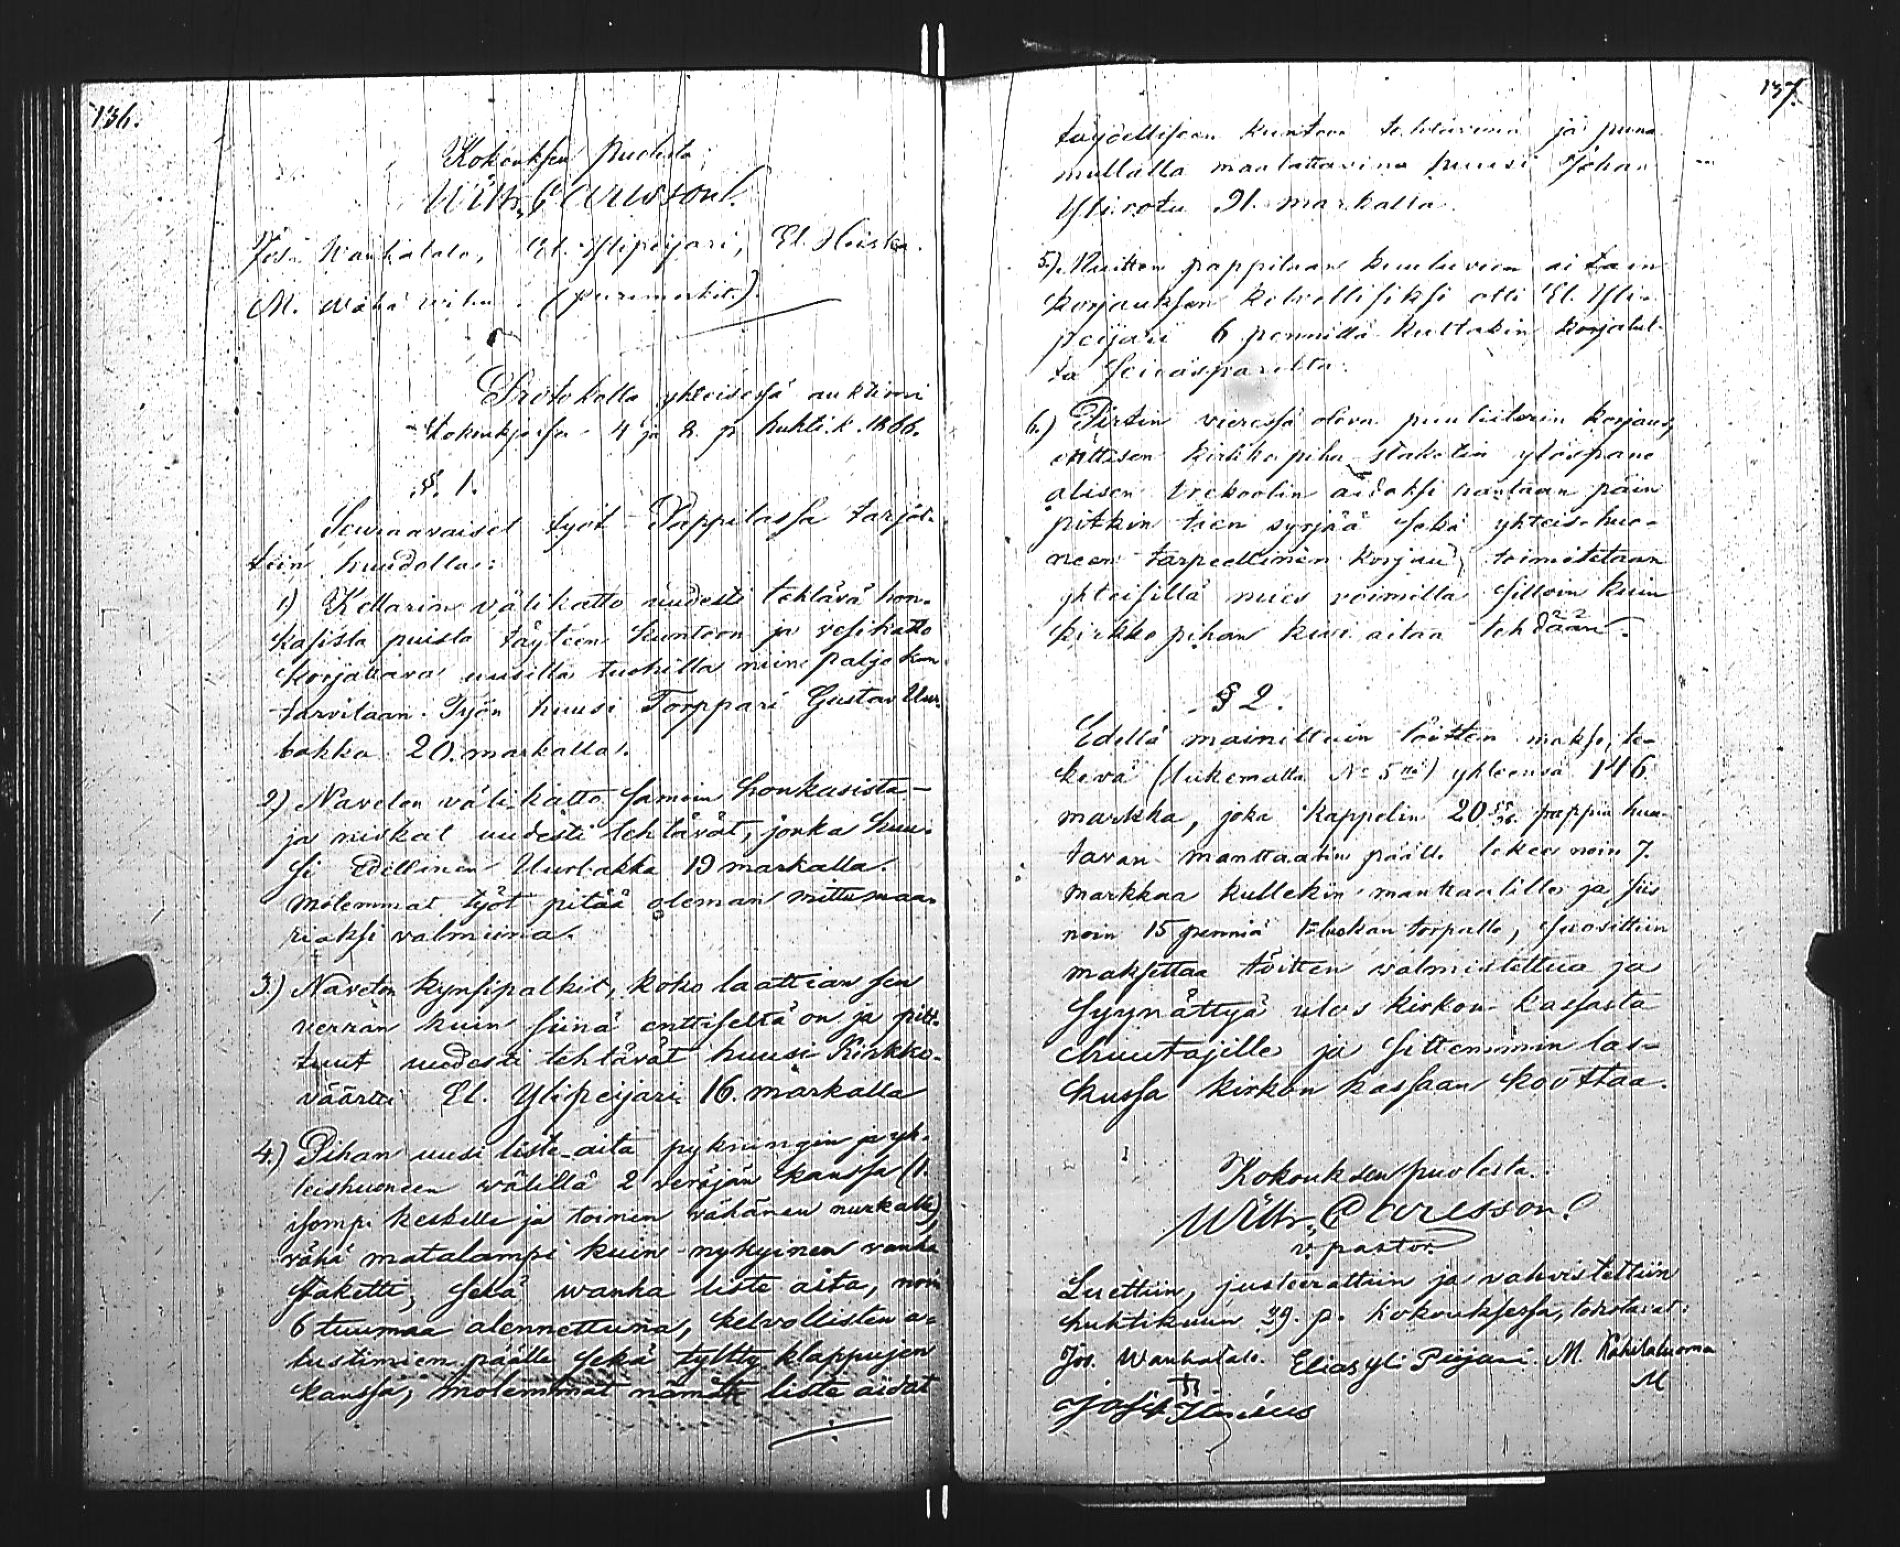 136.
Kokouksen puolesta:
Wilh. Carlsson.
Jos. Wanhatalo, El. Ylipeijari, El. Heiska.
M. Wähä (puumerkit.)
Protokolla yhteisessä auktioni
kokouksessa 4 ja 8. p. huhti.k. 1866.
§. 1.
Seuraavaiset työt Pappilassa tarjot-
tiin huudolla:
1) Kellarin välikatto uudesti tehtävä hon-
kasista puista täyteen kuntoon ja vesikatto
korjattava uusilla tuohilla niin paljo kun
tarvitaan. Työn huusi Torppari Gustav Uur-
bakka 20. markalla.
2) Naveton väli-katto samoin honkasista
ja niskat uudesti tehtävät, jonka huu-
si edellinen Uurbakka 19 markalla.
Molemmat työt pitää oleman mittumaa-
riaksi valmiina.
3.) Naveton kynsipalkit, koko laattian sen
verran kuin siinä enttiseltä on ja pilt-
tuut uudesti tehtävät huusi Kirkko-
väärtti El. Ylipeijari 16. markalla
4.) Pihan uusi liste-aita pykningin ja yh-
teishuoneen välillä 2 veräjän kanssa (1.
isompi keskelle ja toinen vähänen nurkalle),
vähä matalampi kuin nykyinen vanha
staketti, sekä wanha liste aita, noin
6 tuumaa alennettuna, kelvollisten a-
lustimien päälle sekä tyltty klappujen
kanssa, molemmat nämät liste aidat
137.
täydelliseen kuntoon tehtävinä ja puna
mullalla maalattavina huusi Johan
Ylirotu 91. markalla.
5.) Muitten pappilaan kuuluvien aitain
korjauksen kelvollisiksi otti El. Yli-
peijari 6 pennillä kultakin korjatul-
ta seiväsparilta.
6.) Pirtin vieressä oleva puuliiterin korjaus,
enttisen kirkko piha stakotin ylöspano
alisen trekoolin aidaksi rantaan päin
pitkin tien syrjää sekä yhteis-huo-
neen tarpeellinen korjaus, toimitetaan
yhteisillä mies voimilla silloin kuin
kirkko pihan kivi aitaa tehdään.
§ 2.
Edellä mainittuin töitten maksu, te-
kevä (lukematta No 5ttä) yhteensä 146
markka, joka kappelin 20 pappia huu-
tavan manttaatin päälle tekee noin 7.
markkaa kullekin manttaalille ja siis
noin 15 penniä torpalle, suosittiin
maksettaa töitten valmistettua ja
syynättyä ulos kirkon kassasta
huutajille ja sittemmin las-
kussa kirkon kassaan koottaa.
Kokouksen puolesta.
Wilh. Carlsson.
v. pastor.
Luettiin, justeerattiin ja vahvistettiin
huhtikuun 29. p. kokouksessa, todistavat:
Jos. Wanhatalo. Elias yli Peijari. M. Kahilaluoma
M